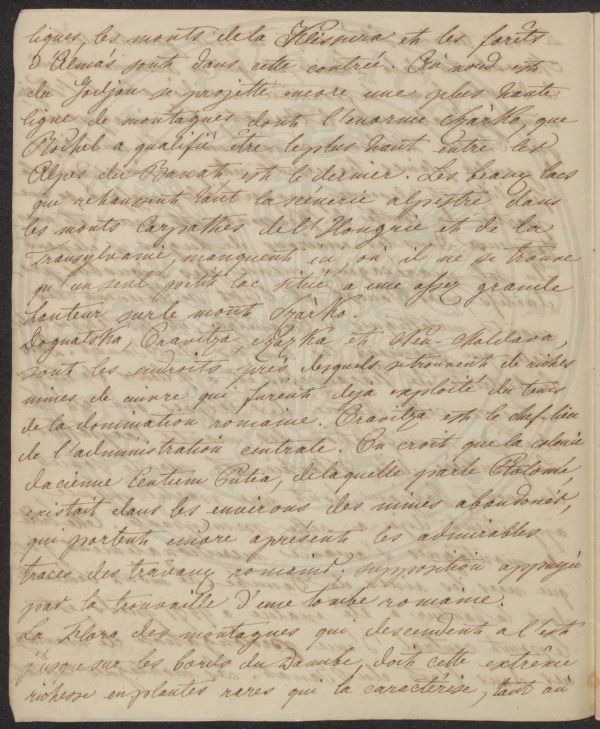 liques, les monts de la Klispira et les forêts
d'Almás sont dans cette contrée. Au nord-est
du Godjan se projette encore une plus haute
ligne de montagnes dont l'enorme Szàrko, que
Rochel a qualifié être le plus haut entre les
Alpes du Banat est le dernier. Les beaux lacs
que rehaussent tant la scénerie alpestre dans
les monts Carpathes de l'Hongrie et de la
Transylvanie, manquent ici, où il ne se trouve
qu'un seul petit lac situé a une assez grande
hauteur sur le mont Szàrko.
Dognatska, Oravitza, Sazka et Neu-Moldava,
sont les endroits près desquels se trouvent de riches
mines de cuivre que furent deja exploité du tems
de la domination romaine. Oravitza est le chef-lieu
de l'administration centrale. On croit que la colonie
dacienne Centum Putia, de laquelle parle Ptolomé,
existait dans les environs des mines abandonés,
qui portent encore aprésent les admirables
traces des travaux romains. supposition appuyée
par la trouvaille d'une tombe romaine.
La Flora des montagnes qui descendent a l'est
jusque sur les bords du Danube, doit cette extrême
richesse en plantes rares qui la caractérise, tant au